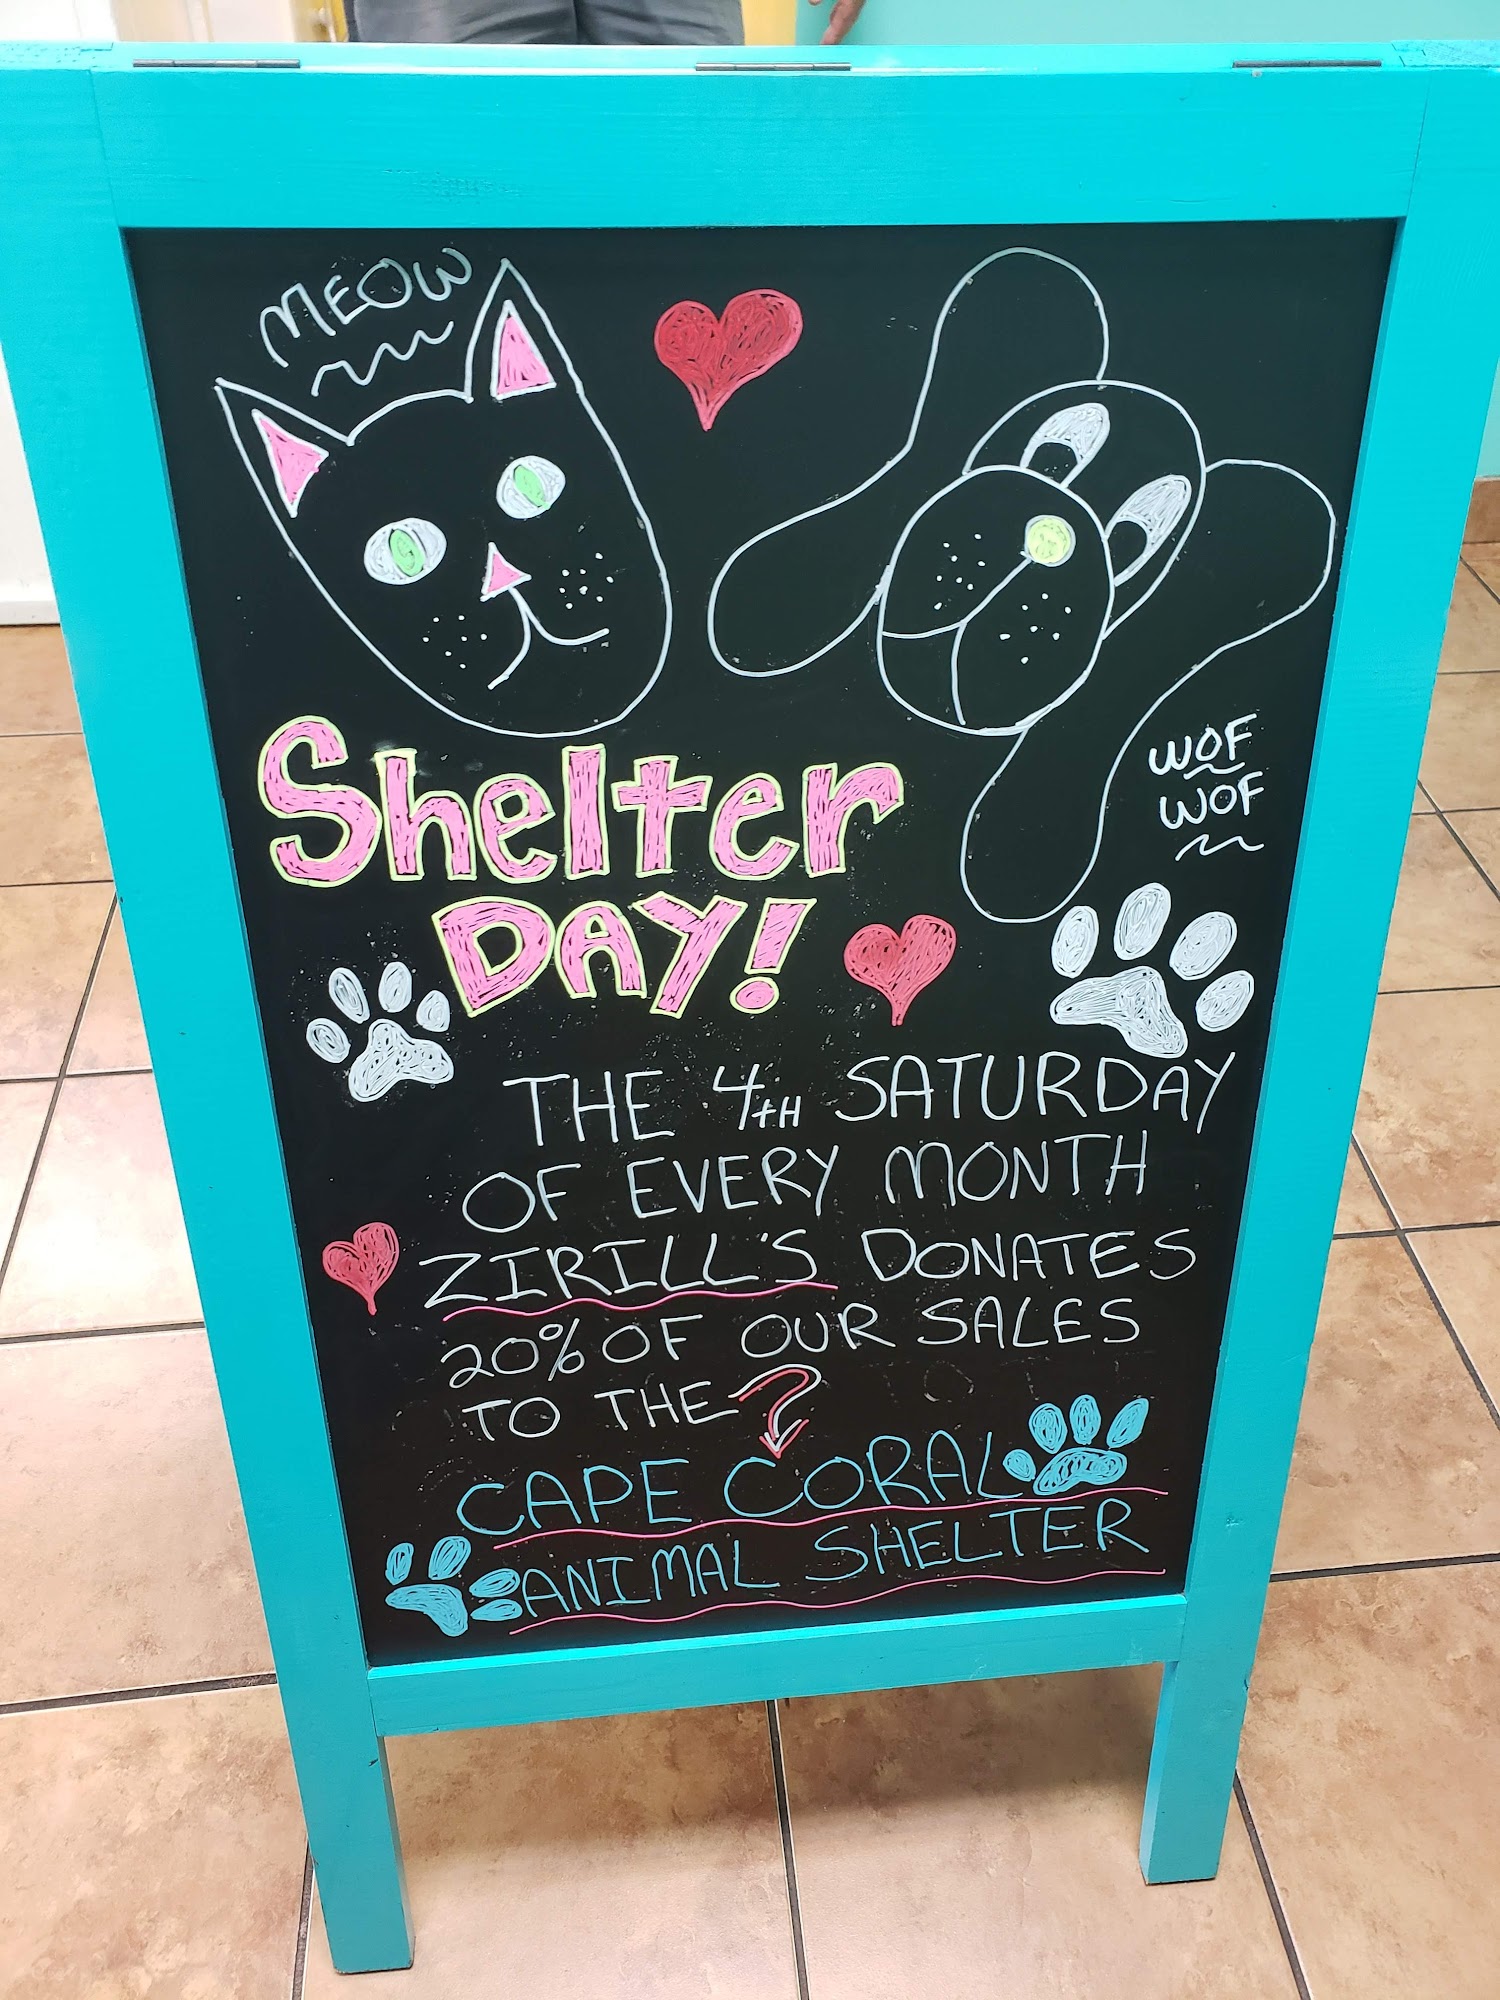 MEOW
WOF
WOF
Shelter
DAY!
THE 4TH SATURDAY
OF EVERY MONTH
ZIRILL'S DONATES
20% OF OUR SALES
TO THE
CAPE CORAL
ANIMAL SHELTER